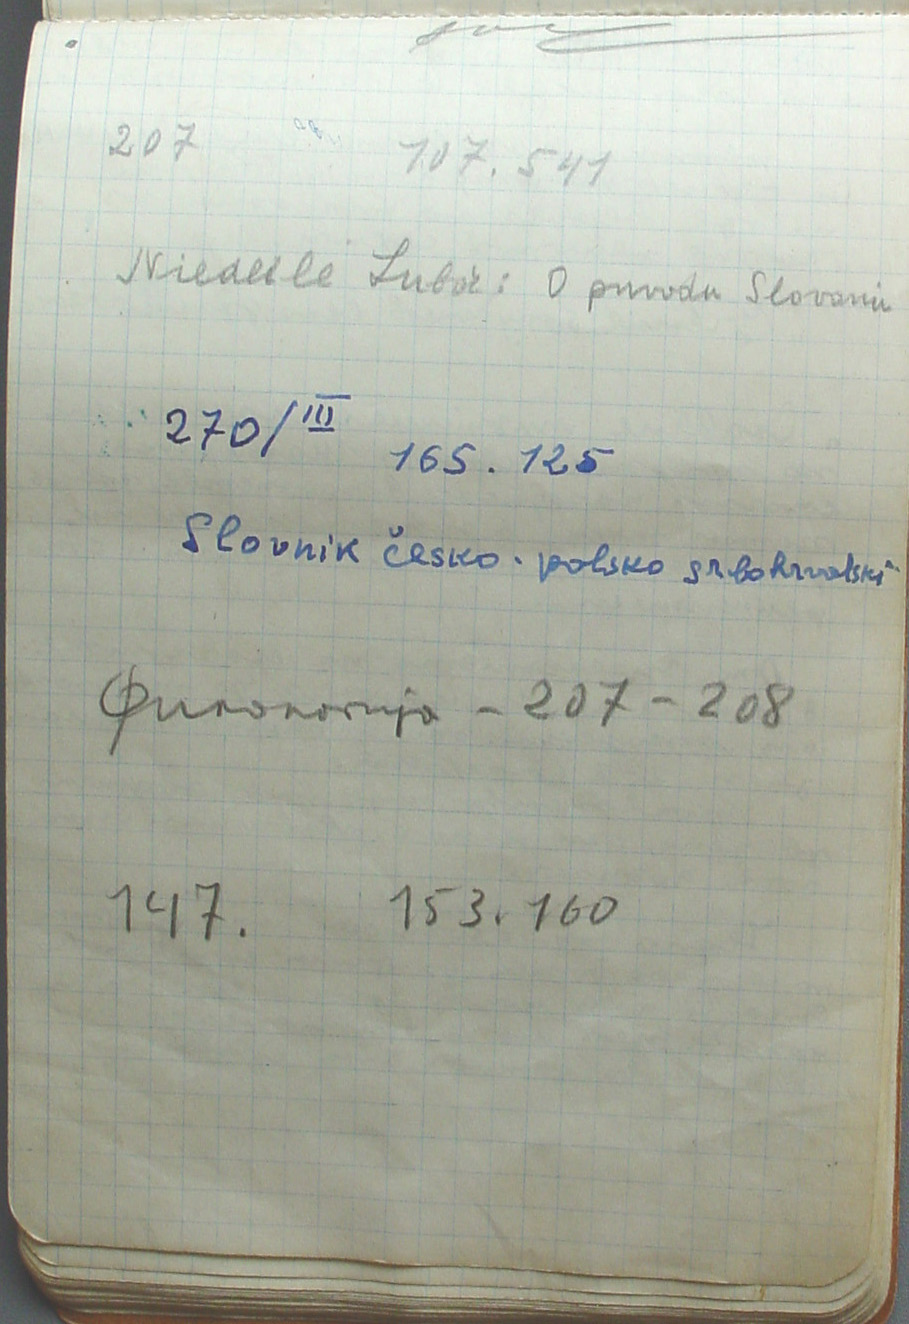 207 107.541
Niederle Lubor: O puvodu Slovanu
270/III 165.125
Slovnik česko-polsko srbohrvatski
- 207 - 208
147. 153.160